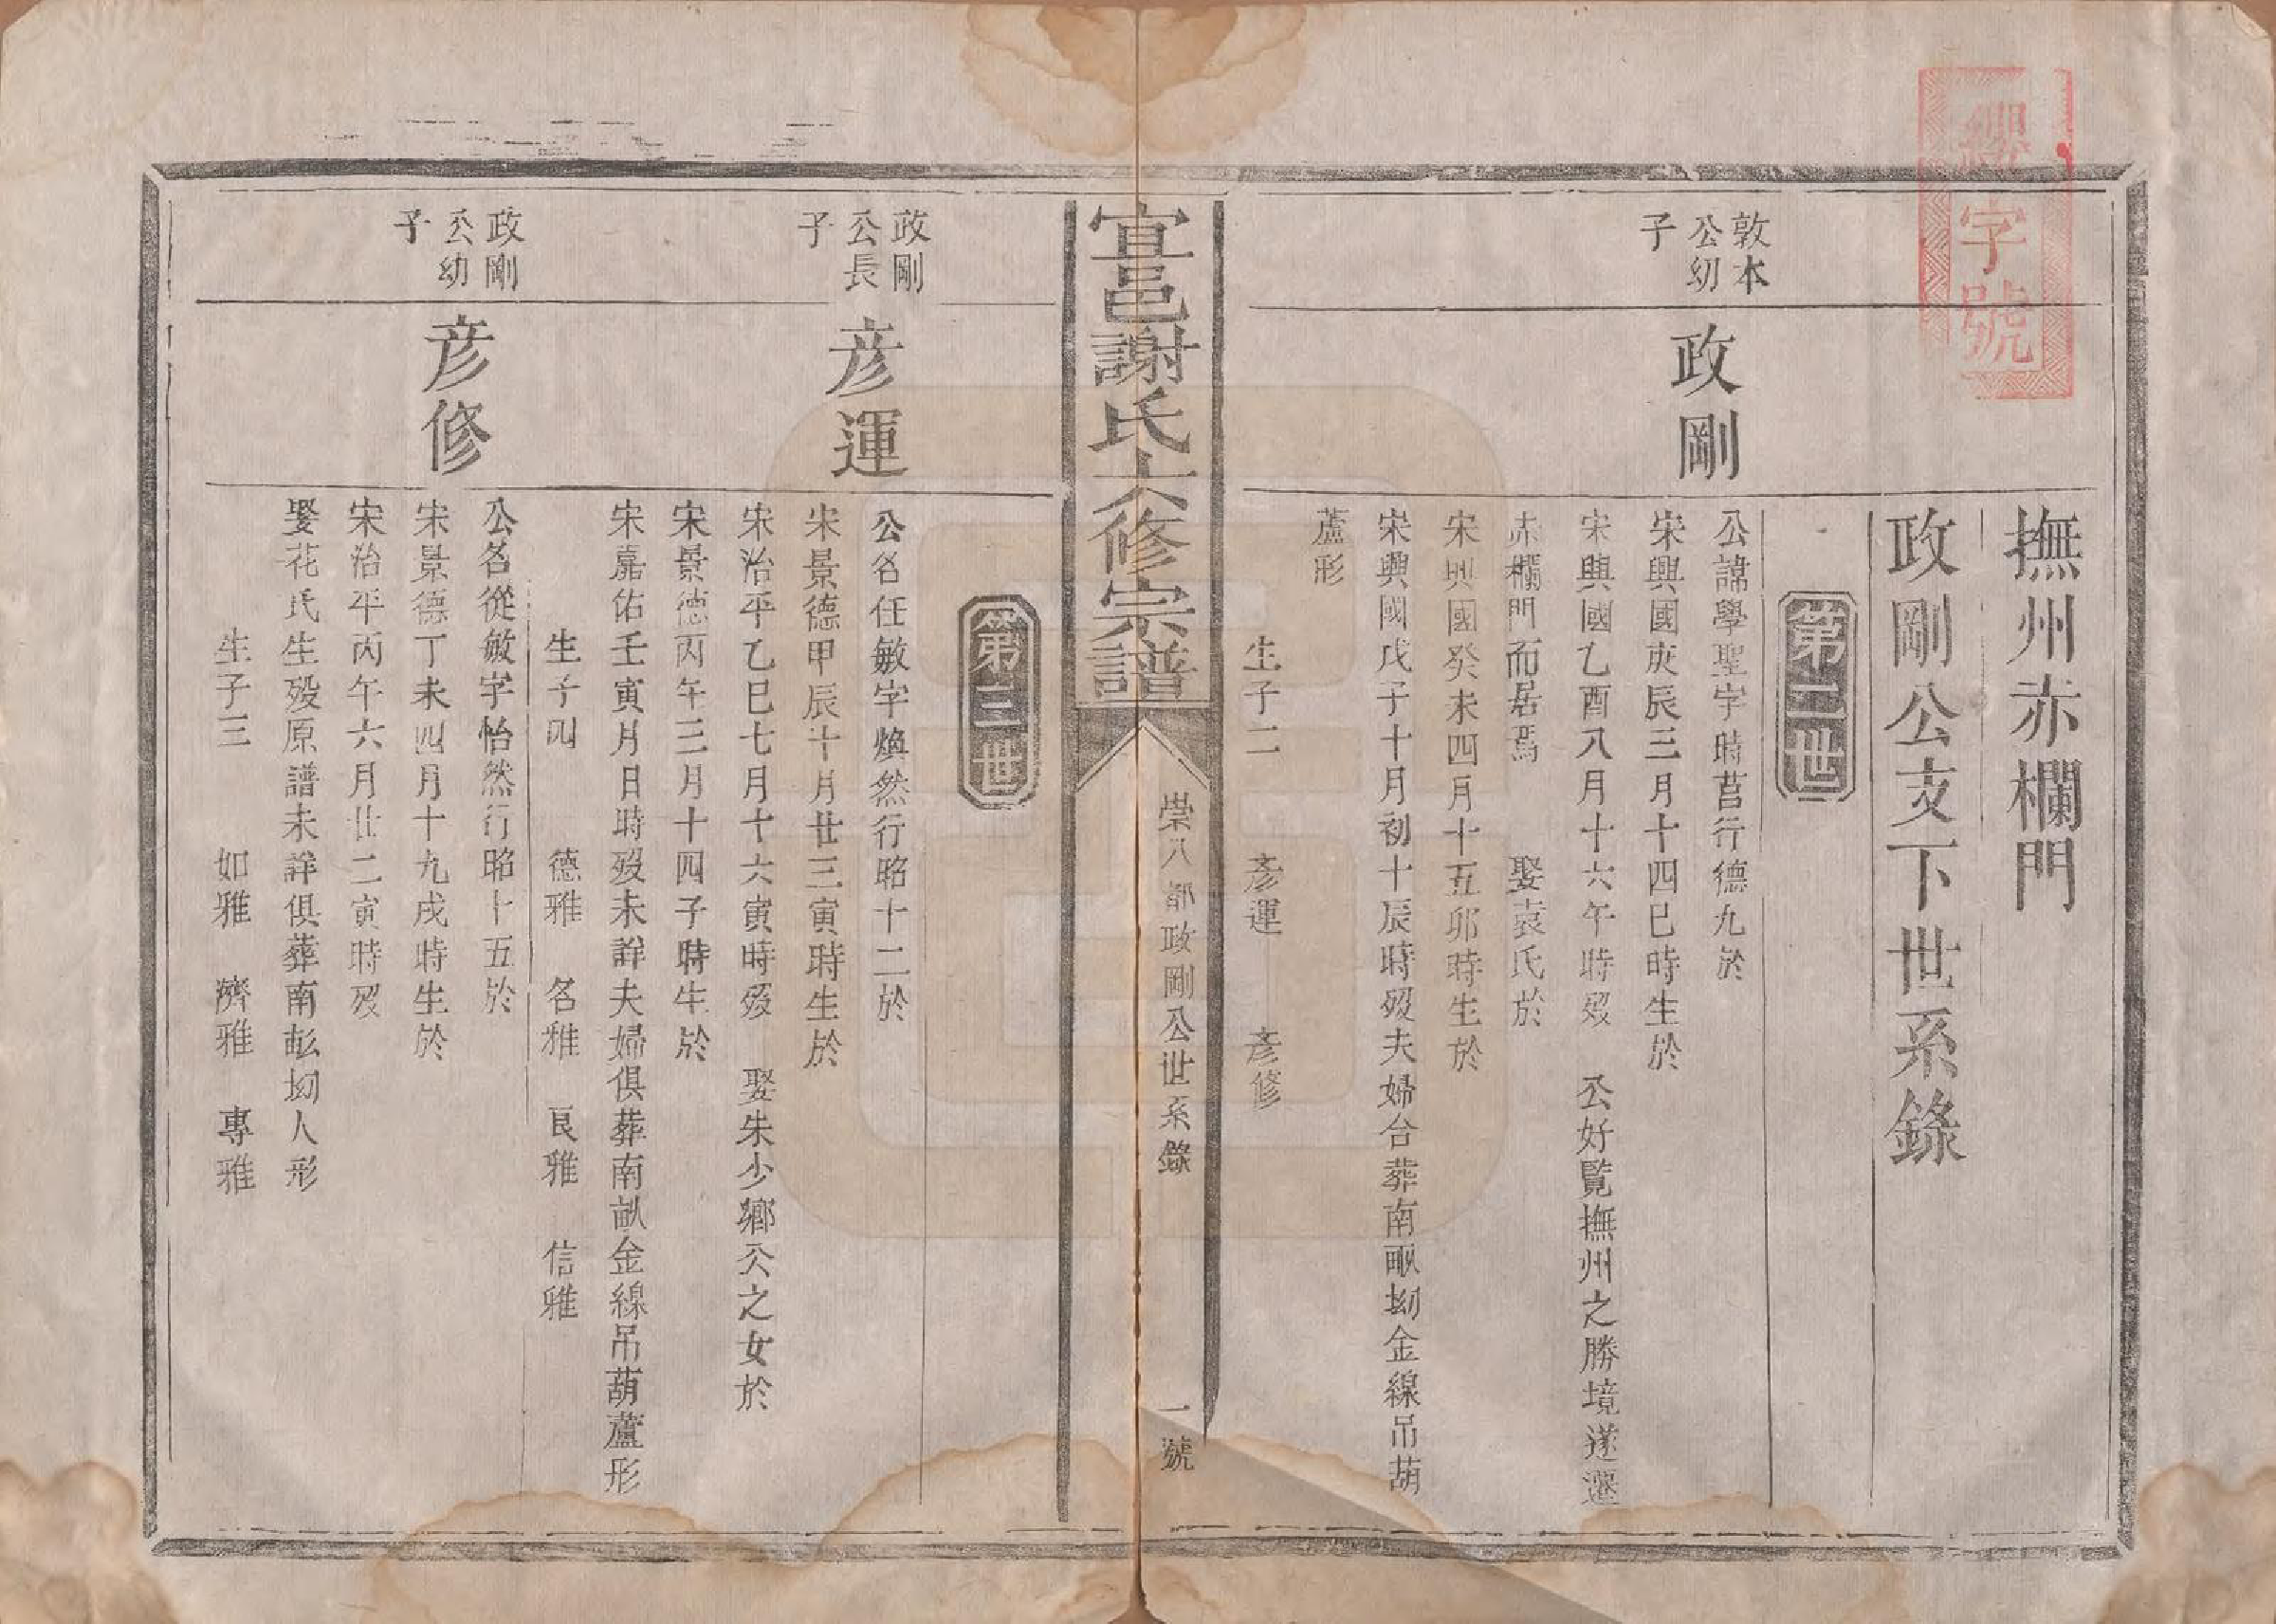 字號
撫州赤欄門
政剛公支下世系錄
第二世
敦本
公幼
子
政剛
公諱學聖字時莒行德九於
宋興國庚辰三月十四巳時生於
宋興國乙酉八月十六午時歿　公好覽撫州之勝境遂遷
赤欄門而居焉　娶袁氏於
宋興國癸未四月十五卯時生於
宋興國戊子十月初十辰時歿夫婦合葬南畝坳金線吊葫
蘆形
生子二　彥運　彥修
宜邑謝氏六修宗譜
崇八都政剛公世系錄　一號
第三世
政剛
公長
子
彥運
公名任敏字煥然行昭十二於
宋景德甲辰十月廿三寅時生於
宋治平乙巳七月十六寅時歿　娶朱少鄉公之女於
宋景德丙午三月十四子時生於
宋嘉佑壬寅月日時歿未詳夫婦俱葬南畝金線吊葫蘆形
生子四　德雅　名雅　良雅　信雅
政剛
公幼
子
彥修
公名從敏字怡然行昭十五於
宋景德丁未四月十九戌時生於
宋治平丙午六月廿二寅時歿
娶花氏生歿原譜未詳俱葬南畝坳人形
生子三　如雅　濟雅　專雅